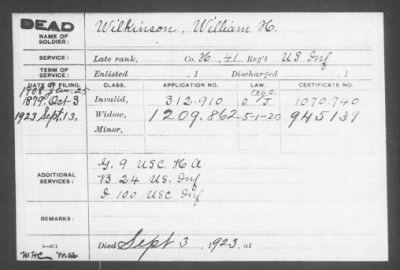 DEAD
NAME OF SOLDIER: Wilkinson, William H.
SERVICE: Late rank, Co. H, 41 Reg't U.S. Inf
TERM OF SERVICE: Enlisted , 1 Discharged , 1
DATE OF FILING. CLASS. APPLICATION NO. LAW. CERTIFICATE NO.
1908 Jan-25 age
1879, Oct-3 Invalid, 312.910 O. J. 1070.740
1923 Sept, 13, Widow, 1209.862 5-1-20 945139
Minor,
ADDITIONAL SERVICES:
G. 9 U.S.C. H A
B 24 U.S. Inf
100 U.S.C. Inf
REMARKS:
Died Sept 3, 1923, at
Mass